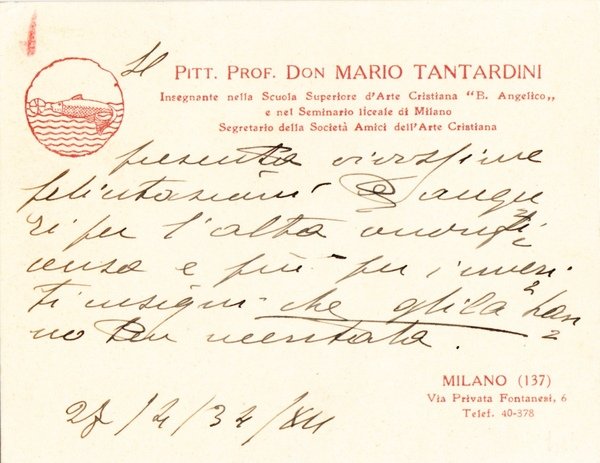 Il PITT. PROF. DON MARIO TANTARDINI
Insegnante nella Scuola Superiore d'Arte Cristiana "B. Angelico„
e nel Seminario liceale di Milano
Segretario della Società Amici dell'Arte Cristiana
presenta vivissime
felicitazioni e augu
ri per l'alta onorifi
cenza e più per i meri
ti insigni che glila han
no ben meritata.
MILANO (137)
Via Privata Fontanesi, 6
Telef. 40-378
27/4/34/XII